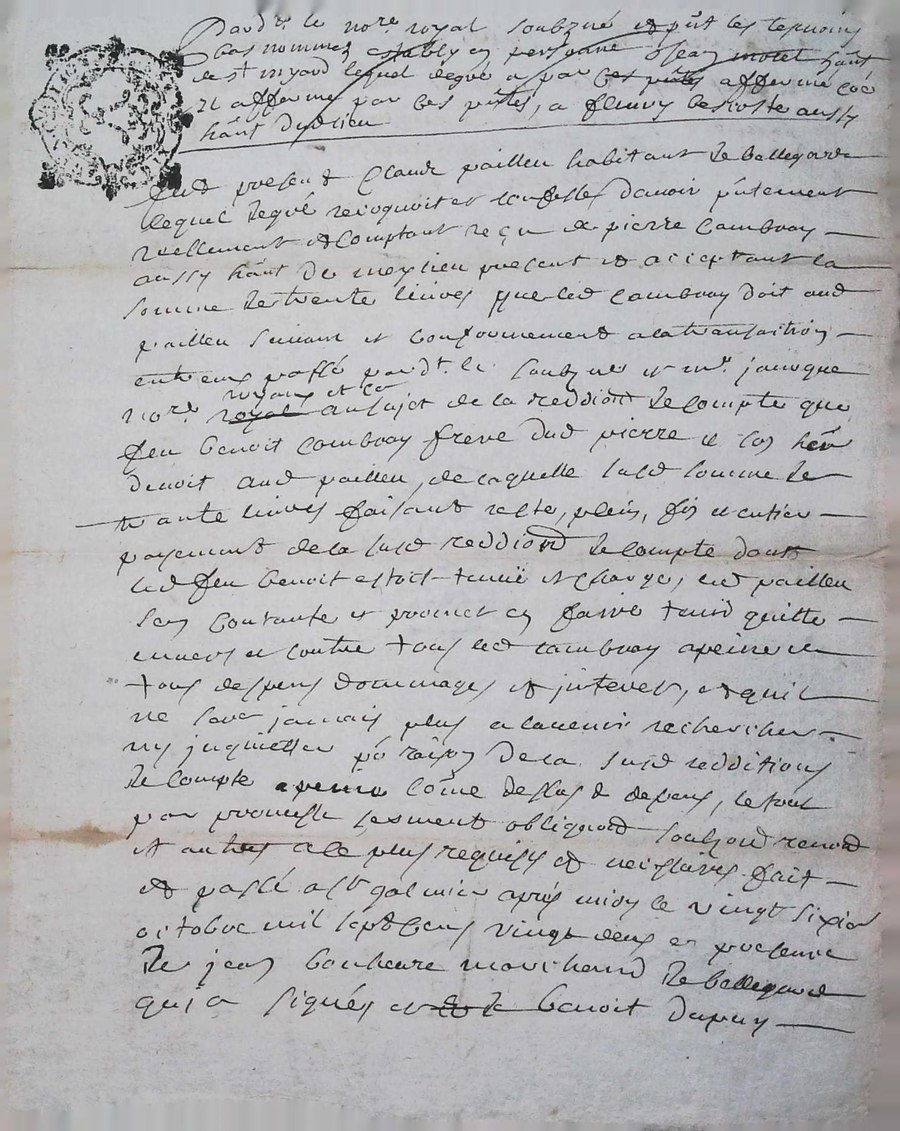 Pard.t le no.re royal soubzné et pñt les temoins
bas nommez establÿ en personne Jean
de st lequel degré a par ces pñtes affermé
et afferme par ces pñtes, a fleury aussy
hãnt dud lieu
fut present Claude pailleu habitant de bellegarde
lequel de gré reconnoit et confesse davoir pñtement
reellement et comptant reçu de pierre cambray
aussy hãnt de meylieu present et acceptant la
somme de trente livres que led cambray doit aud
pailleu suivant et conformement a la transaction
entre eux passé pard.t le soubzné et m.r janicque
no.re royal royaux et c.e au sujet de la reddiond de compte que
feu benoit cambray frere dud pierre et son her
devoit aud pailleu, de laquelle susd somme de
trante livres faisant reste, plein, fin et entier
payement de la susd reddiond de compte dont
led feu benoit estoit tenu et chargé, led pailleu
sen contante et promet en faire tenir quitte
envers et contre tous led cambray a peine de
tous despens dommages et interest, et quil
ne sera jamais plus a lavenir recherché
ny inquietter po.r raison de la susd redditions
de compte a peine cõme dessus de depens, le tout
par promesse serment obligaond soubzond renond
et autres a ce plus requises et necessaires fait
et passé a s.t galmier aprés midy le vingt six
octobre mil sept cens vingt deux en presence
de jean bonheure marchand de bellegarde
qui a signés et de benoit dupuy